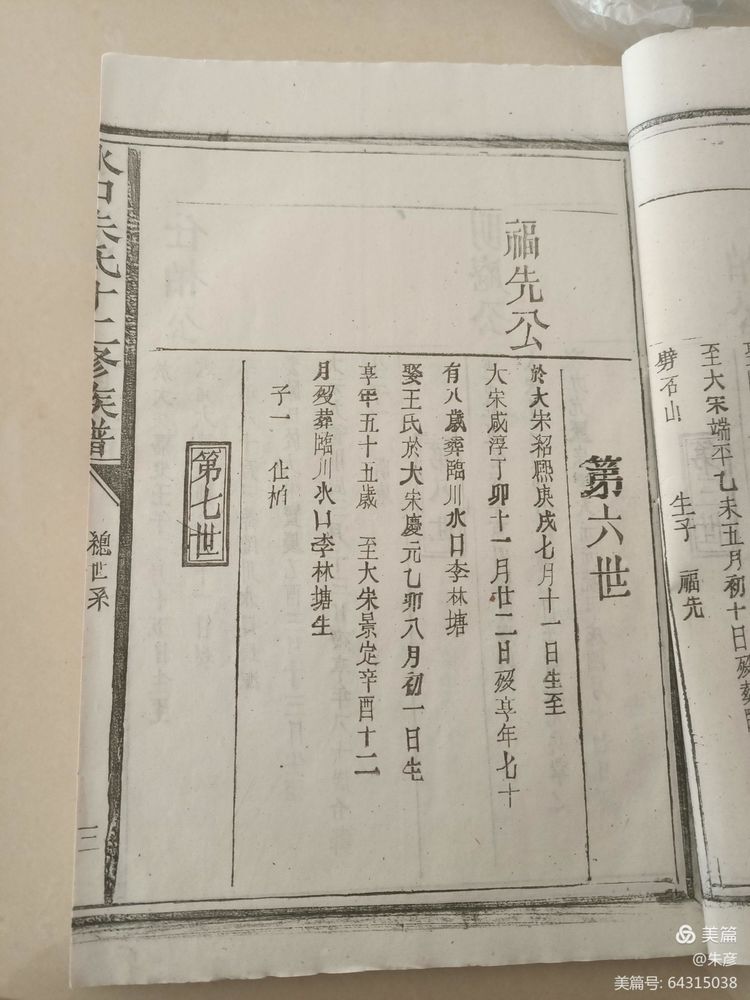 至大宋端平乙未五月初十日殁葬
劈石山
生子 福先
第六世
福先公
於大宋紹熙庚戌七月十一日生至
大宋咸淳丁卯十一月廿二日殁享年七十
有八歲葬臨川水口李林塘
娶王氏於大宋慶元乙卯八月初一日生
享年五十五歲 至大宋景定辛酉十二
月殁葬臨川水口李林塘生
子一 仕柏
第七世
水口朱氏十二修族譜
總世系
三
美篇
@朱彦
美篇号: 64315038